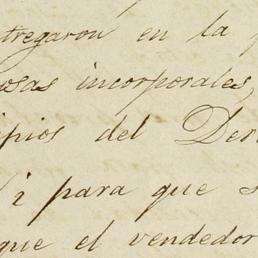 tregaron en la
osas incorporales,
ipios del Der
i para que s
que el vendedor